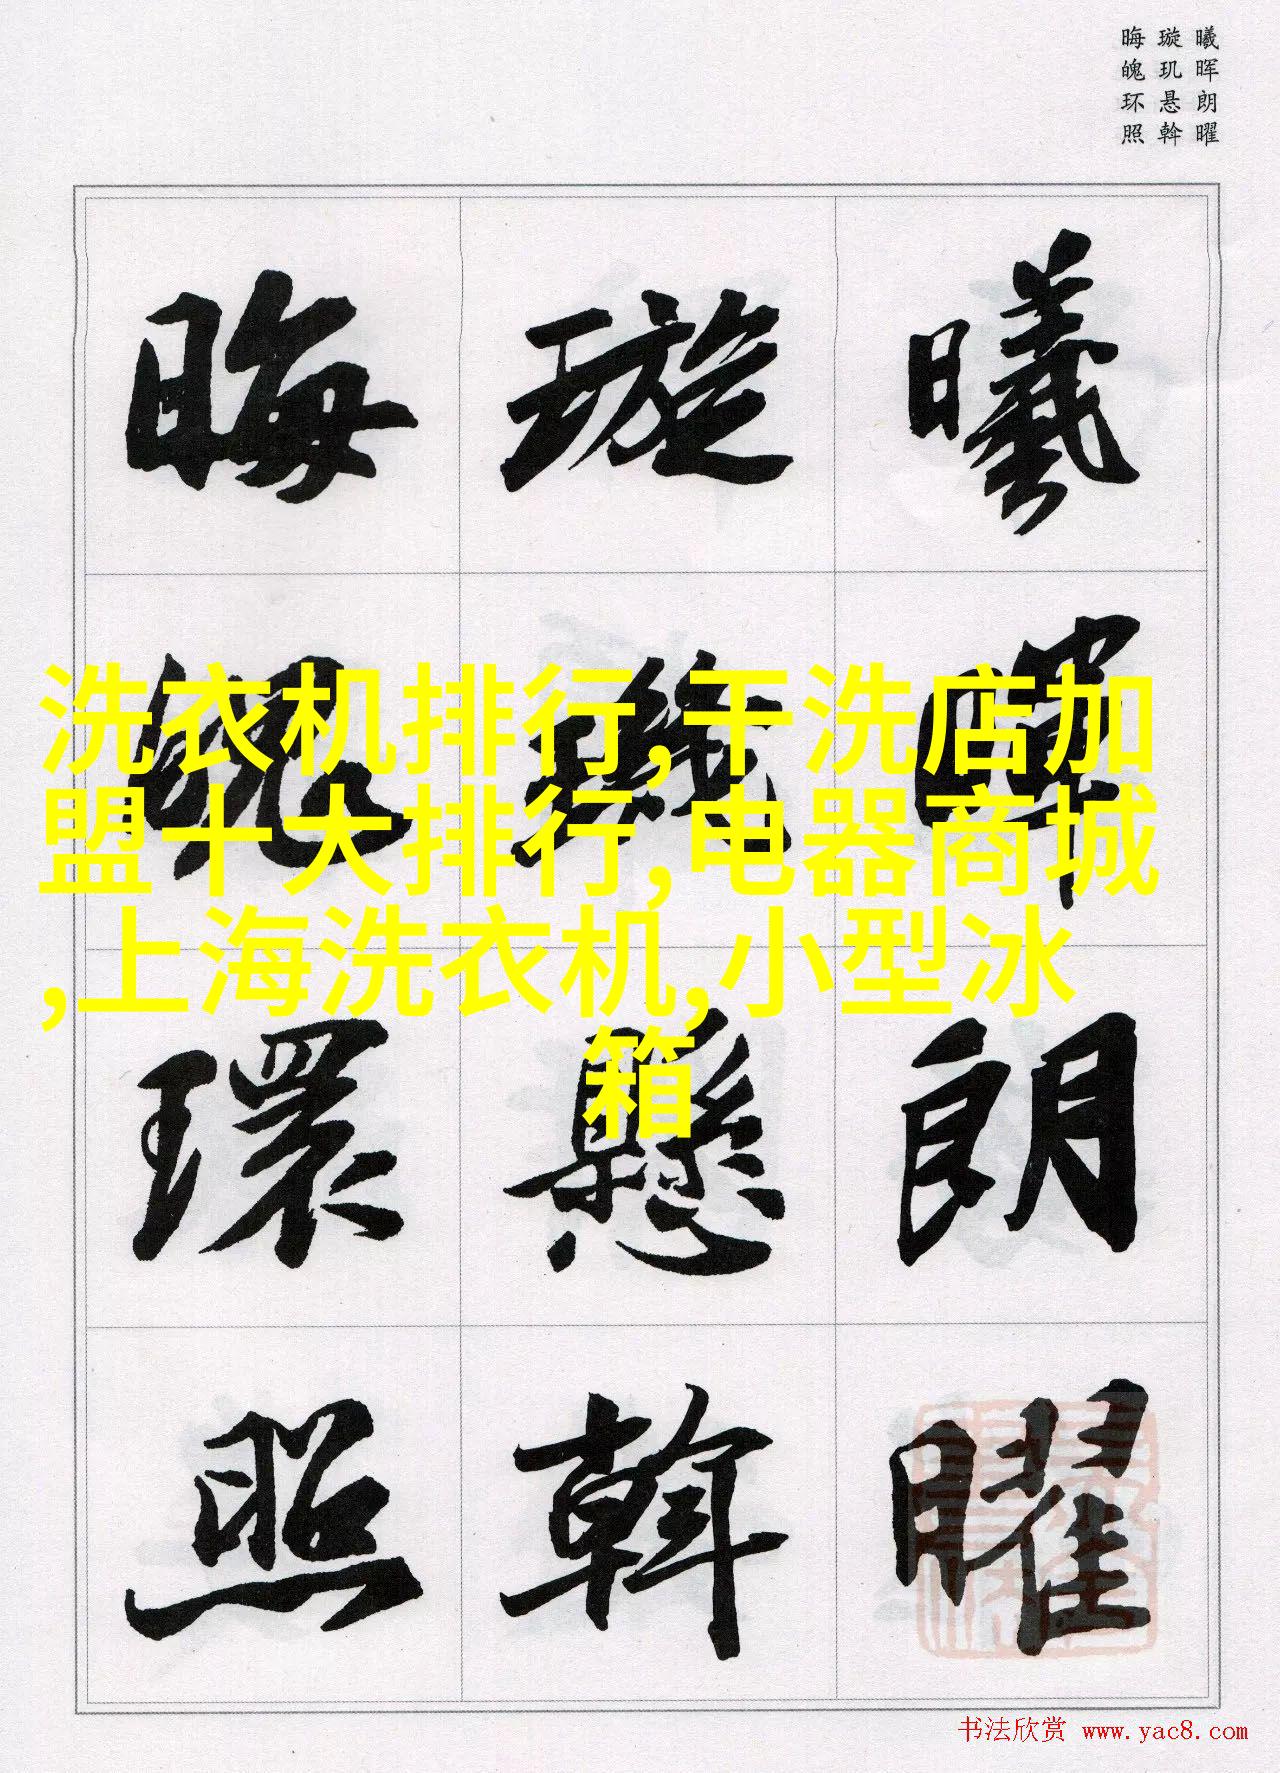 曦晖朗曜
璇玑悬斡
晦魄环照
曦暉朗曜
璇璣懸斡
晦魄環照
洗衣机排行,干洗店加
盟十大排行,电器商城
,上海洗衣机,小型冰
箱
书法欣赏 www.yac8.com